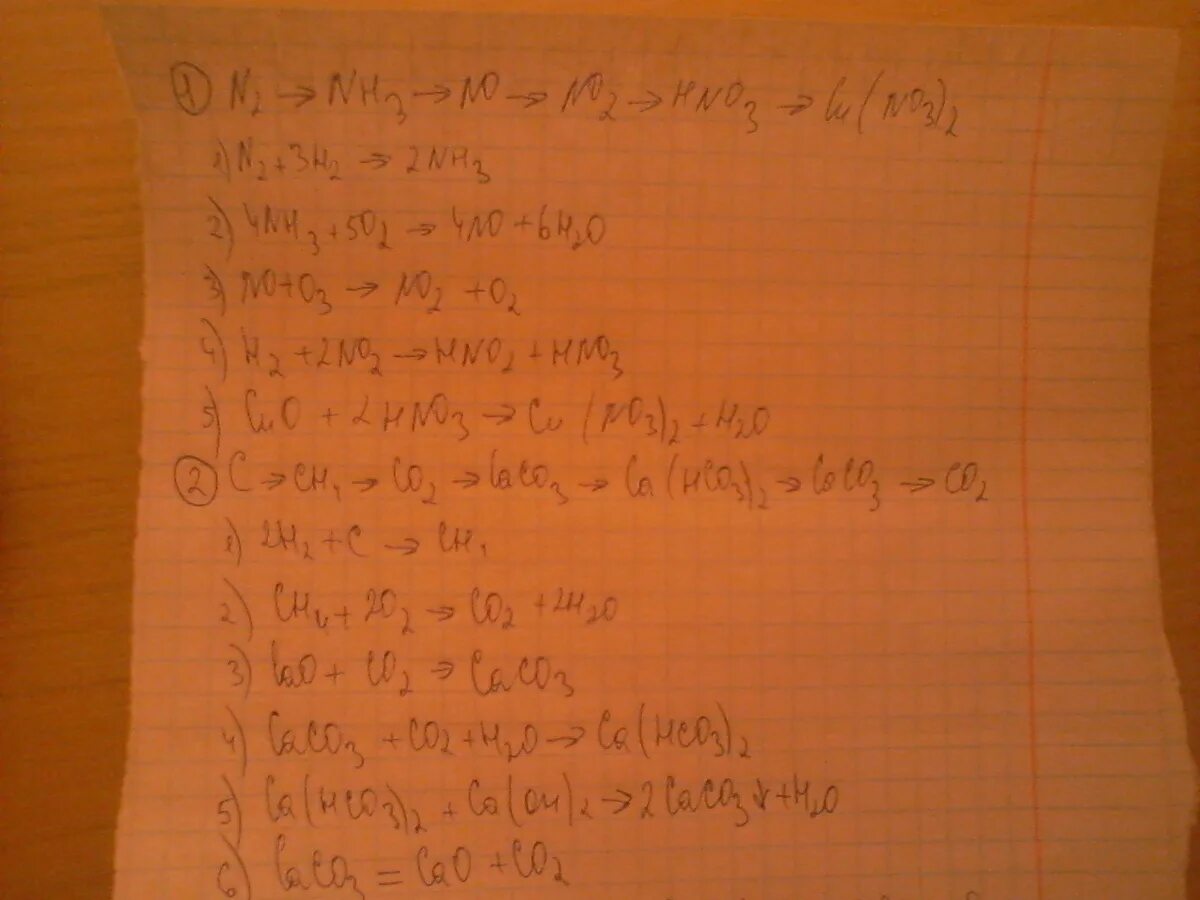 ① N₂ → NH₃ → NO → NO₂ → HNO₃ → Cu(NO₃)₂
1) N₂ + 3H₂ → 2NH₃
2) 4NH₃ + 5O₂ → 4NO + 6H₂O
3) NO + O₃ → NO₂ + O₂
4) H₂ + 2NO₂ → HNO₂ + HNO₃
5) CuO + 2HNO₃ → Cu(NO₃)₂ + H₂O
② C → CH₄ → CO₂ → CaCO₃ → Ca(HCO₃)₂ → CaCO₃ → CO₂
1) 2H₂ + C → CH₄
2) CH₄ + 2O₂ → CO₂ + 2H₂O
3) CaO + CO₂ → CaCO₃
4) CaCO₃ + CO₂ + H₂O → Ca(HCO₃)₂
5) Ca(HCO₃)₂ + Ca(OH)₂ → 2CaCO₃↓ + H₂O
6) CaCO₃ = CaO + CO₂